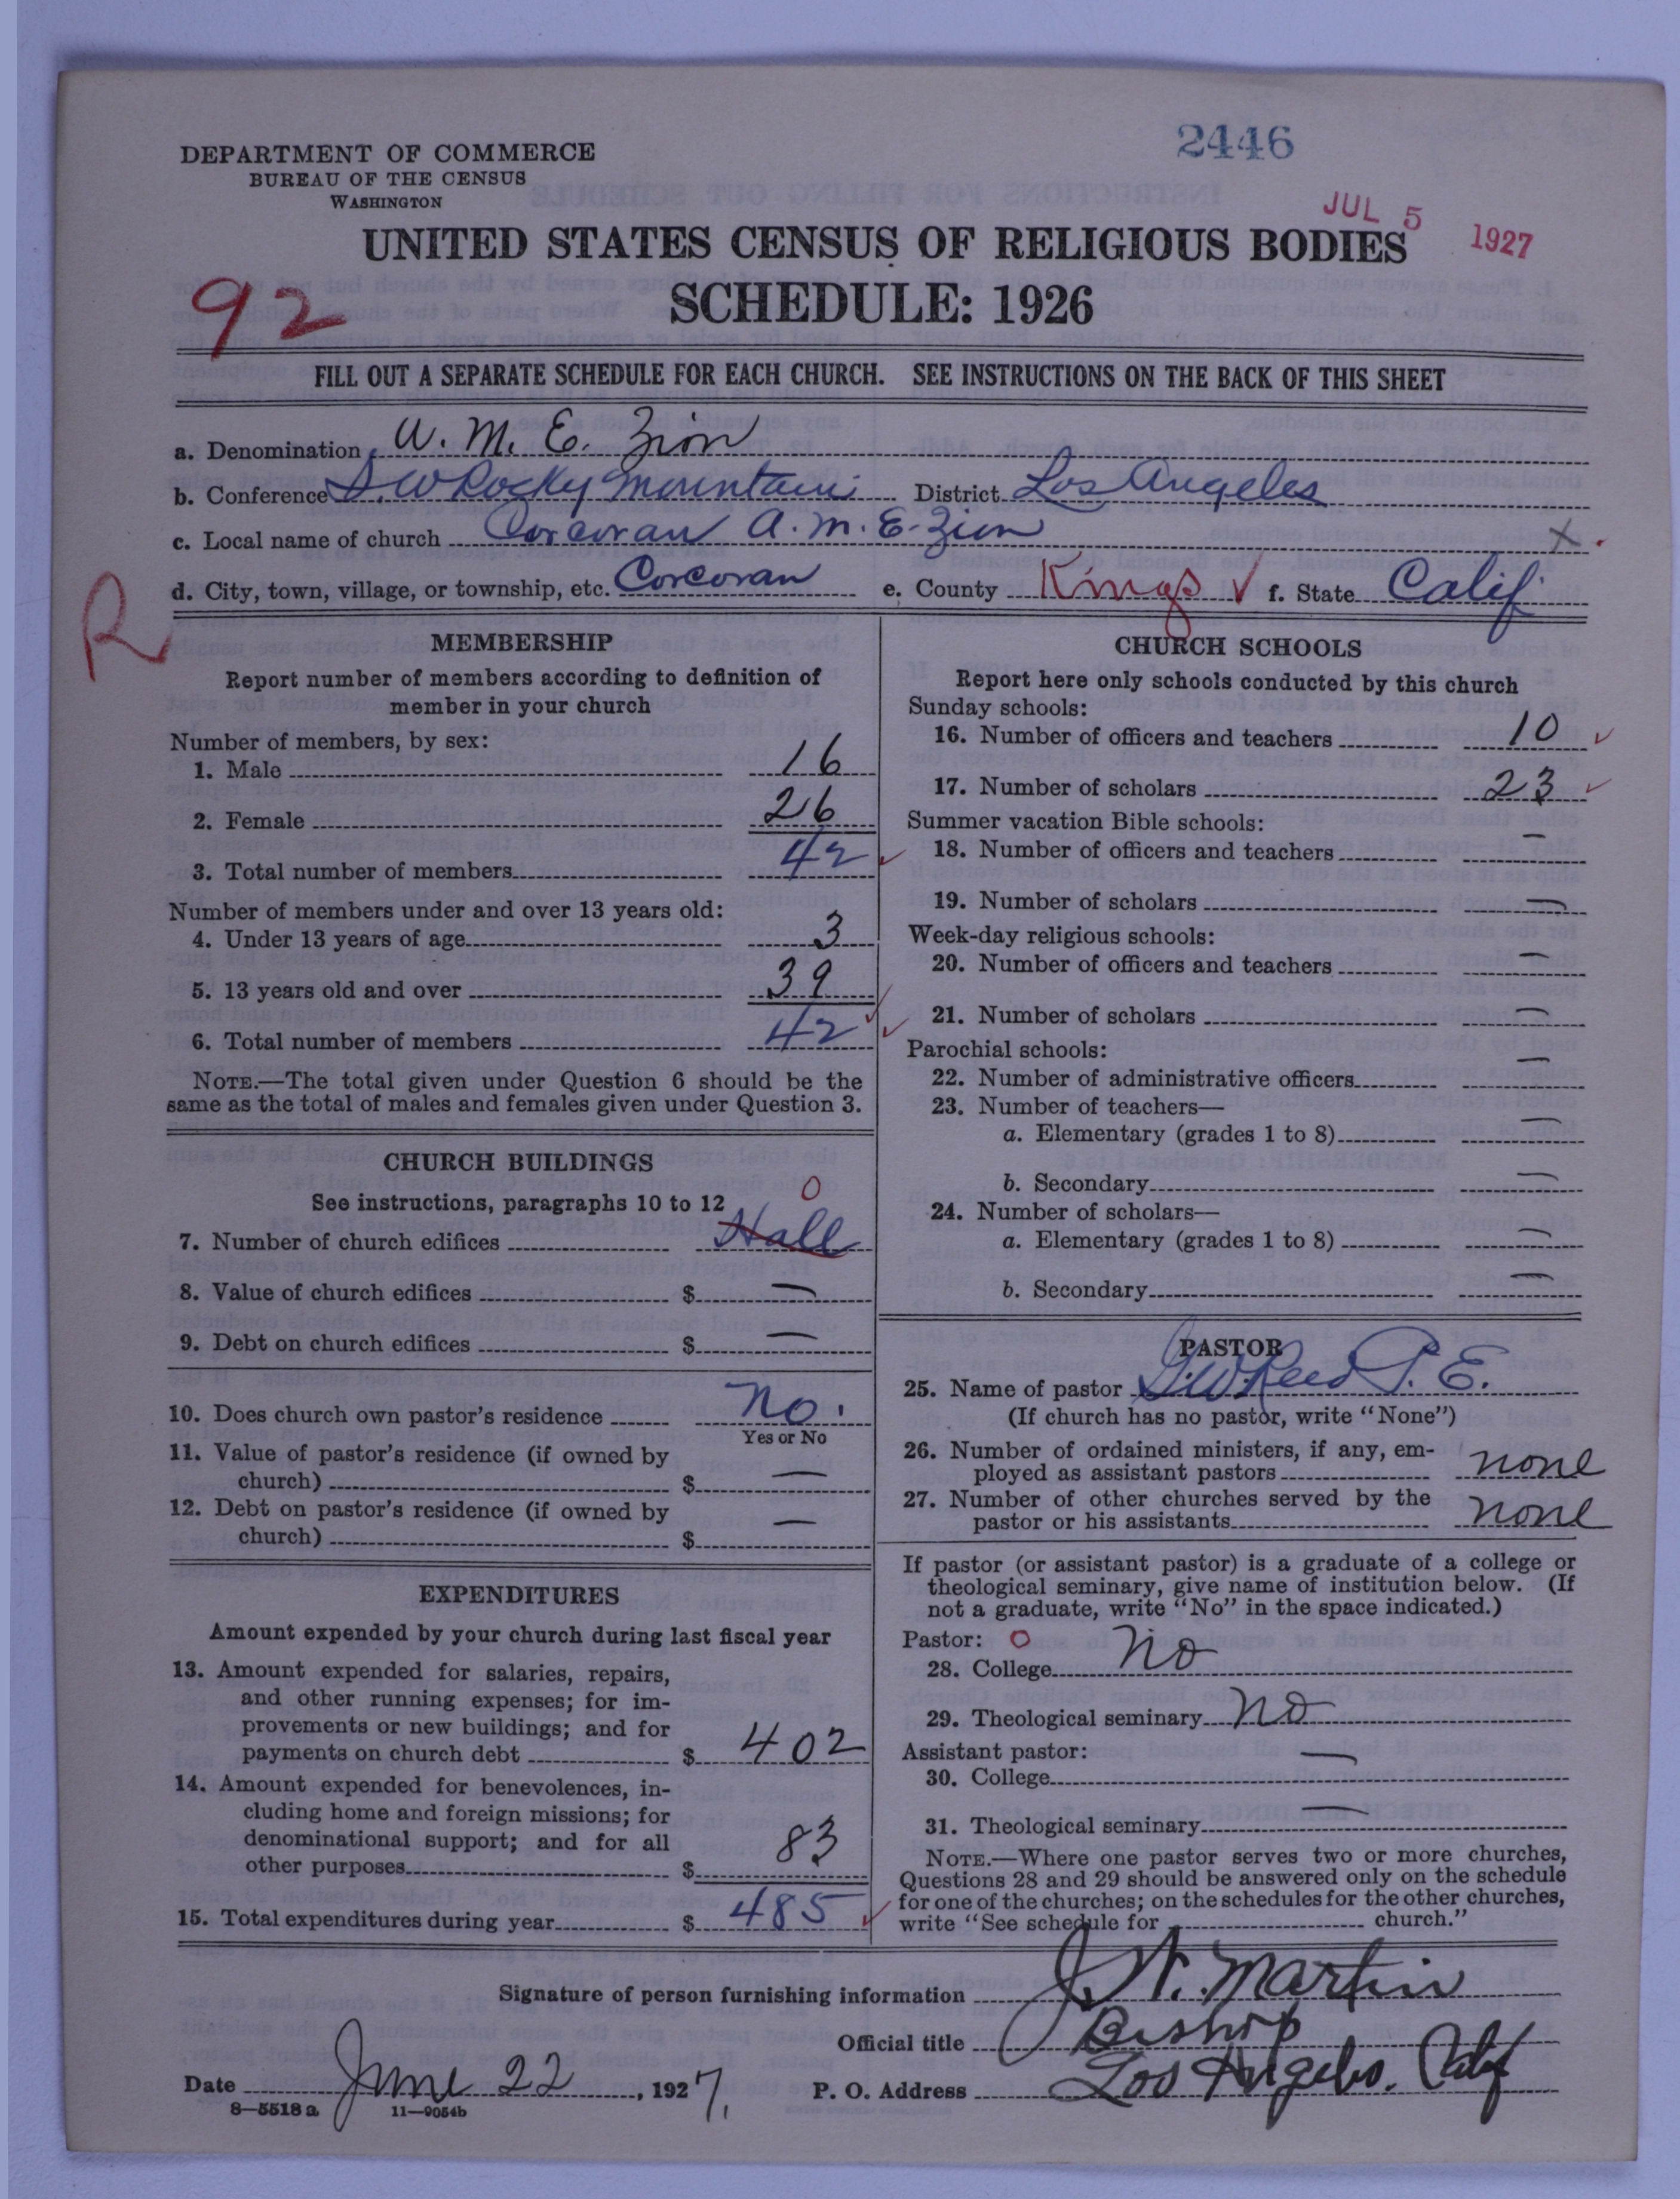 2446
DEPARTMENT OF COMMERCE
BUREAU OF THE CENSUS
WASHINGTON
JUL 5 1927
UNITED STATES CENSUS OF RELIGIOUS BODIES
92
SCHEDULE: 1926
FILL OUT A SEPARATE SCHEDULE FOR EACH CHURCH. SEE INSTRUCTIONS ON THE BACK OF THIS SHEET
a. Denomination A. M. E. Zion
b. Conference S. W Rocky Mountain District Los Angeles
c. Local name of church Corcoran A. M. E. Zion X
d. City, town, village, or township, etc. Corcoran e. County Kings ✓ f. State Calif
R
MEMBERSHIP
Report number of members according to definition of
member in your church
Number of members, by sex:
1. Male 16
2. Female 26
3. Total number of members 42 ✓
Number of members under and over 13 years old:
4. Under 13 years of age 3
5. 13 years old and over 39
6. Total number of members 42 ✓ ✓
NOTE.—The total given under Question 6 should be the
same as the total of males and females given under Question 3.
CHURCH BUILDINGS
See instructions, paragraphs 10 to 12 0
7. Number of church edifices Hall
8. Value of church edifices $ —
9. Debt on church edifices $ —
10. Does church own pastor's residence No.
Yes or No
11. Value of pastor's residence (if owned by
church) $ —
12. Debt on pastor's residence (if owned by
church) $ —
EXPENDITURES
Amount expended by your church during last fiscal year
13. Amount expended for salaries, repairs,
and other running expenses; for im-
provements or new buildings; and for
payments on church debt $ 402
14. Amount expended for benevolences, in-
cluding home and foreign missions; for
denominational support; and for all
other purposes $ 83
15. Total expenditures during year $ 485 ✓
CHURCH SCHOOLS
Report here only schools conducted by this church
Sunday schools:
16. Number of officers and teachers 10 ✓
17. Number of scholars 23 ✓
Summer vacation Bible schools:
18. Number of officers and teachers —
19. Number of scholars —
Week-day religious schools:
20. Number of officers and teachers —
21. Number of scholars —
Parochial schools:
22. Number of administrative officers —
23. Number of teachers—
a. Elementary (grades 1 to 8) —
b. Secondary —
24. Number of scholars—
a. Elementary (grades 1 to 8) —
b. Secondary —
PASTOR
25. Name of pastor G. W. Reed P. E.
(If church has no pastor, write "None")
26. Number of ordained ministers, if any, em-
ployed as assistant pastors none
27. Number of other churches served by the
pastor or his assistants none
If pastor (or assistant pastor) is a graduate of a college or
theological seminary, give name of institution below. (If
not a graduate, write "No" in the space indicated.)
Pastor: 0
28. College No
29. Theological seminary No
Assistant pastor:
30. College —
31. Theological seminary —
NOTE.—Where one pastor serves two or more churches,
Questions 28 and 29 should be answered only on the schedule
for one of the churches; on the schedules for the other churches,
write "See schedule for church."
Signature of person furnishing information J. W. Martin
Official title Bishop
Date June 22, 1927. P. O. Address Los Angeles. Calif
8—5518 a 11—9054b